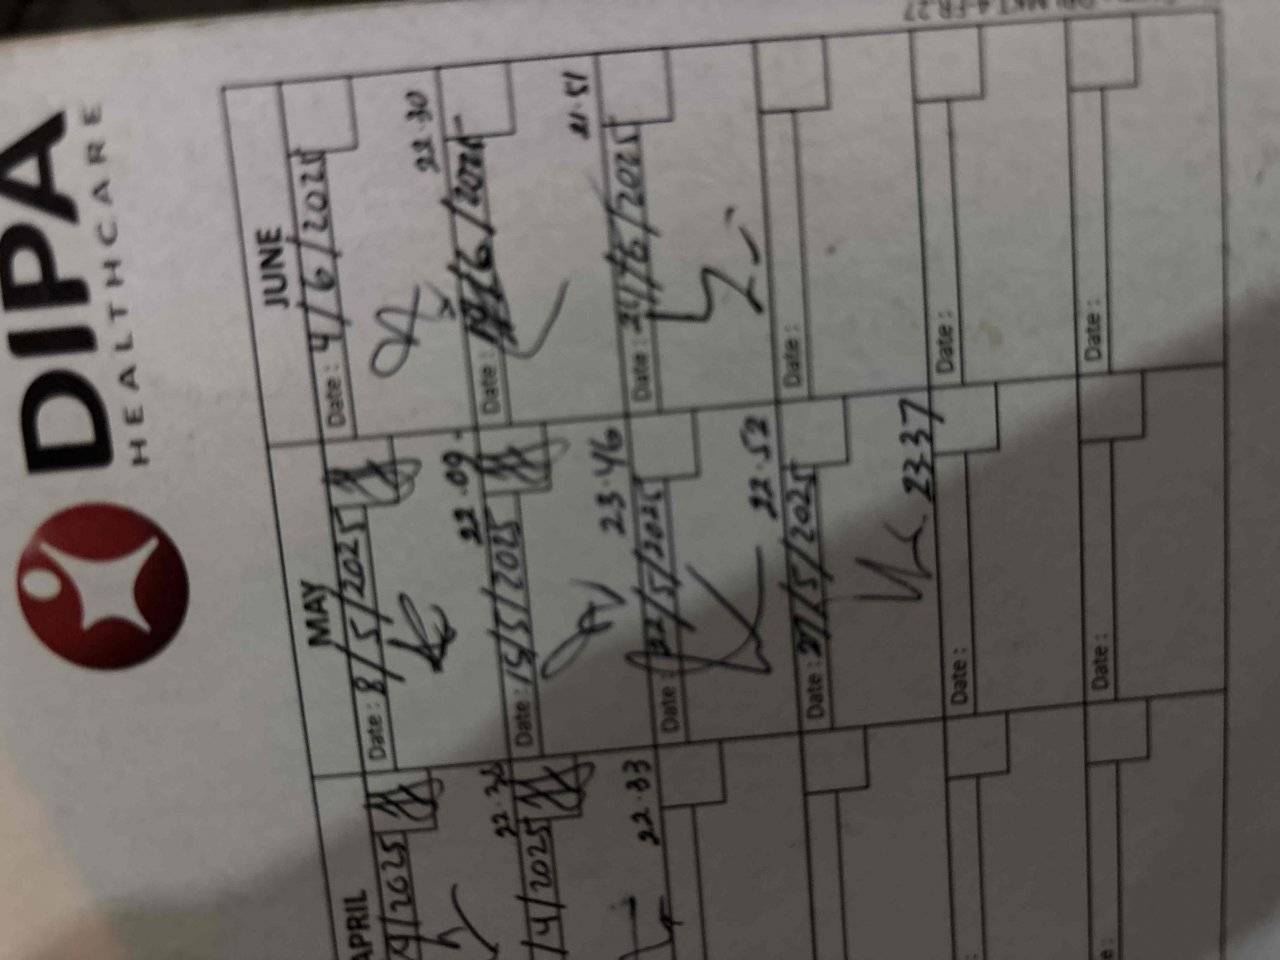 DIPA
HEALTHCARE
APRIL
4/2025
22.32
/4/2025
22.33
MAY
Date: 8/5/2025
22.09
Date: 15/5/2025
23.46
Date: 22/5/2025
22.52
Date: 27/5/2025
23.37
Date:
Date:
JUNE
Date: 4/6/2025
22.30
Date: /6/2025
21.51
Date: 24/6/2025
Date:
Date:
Date: